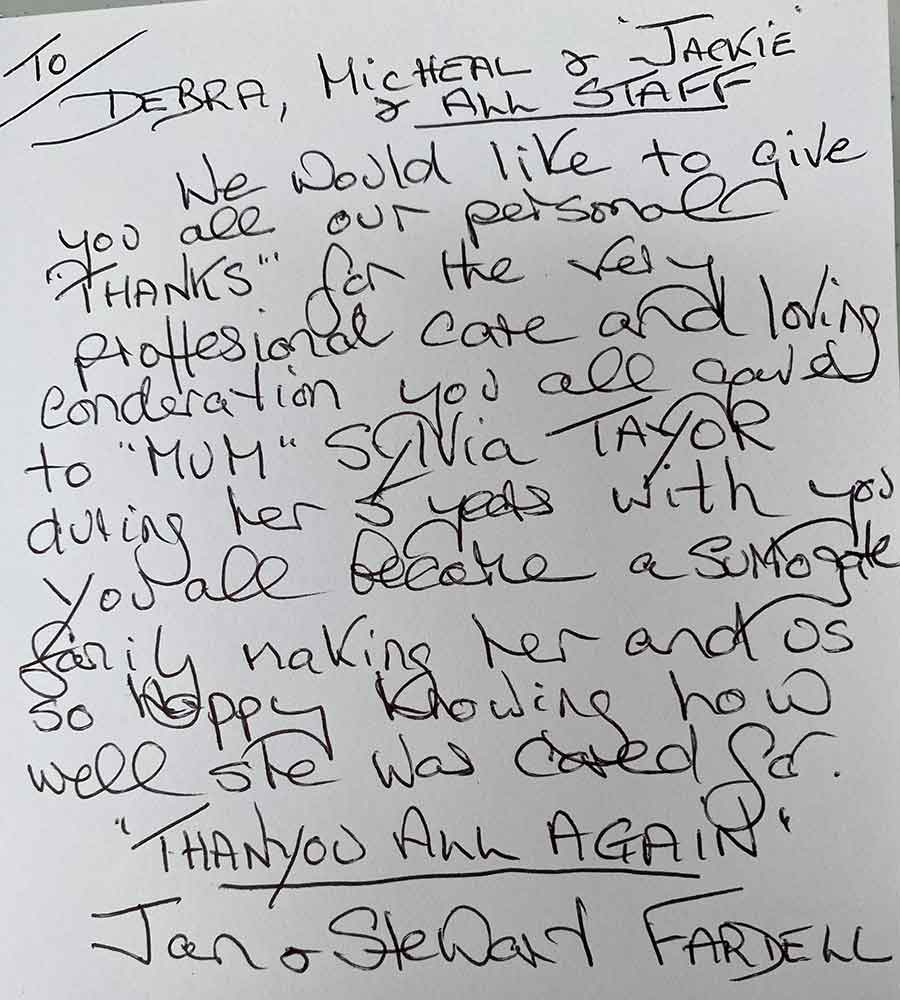 To
DEBRA, MICHEAL & "JACKIE"
& ALL STAFF
We Would like to give
you all our personal
"THANKS" for the very
proffesional care and loving
conderation you all gave
to "MUM" SYLVia TAYOR
during her 5 years with you
You all became a surrogate
family making her and us
so Happy Knowing how
well she was cared for.
"THANYOU ALL AGAIN"
Jan & Stewart FARDELL